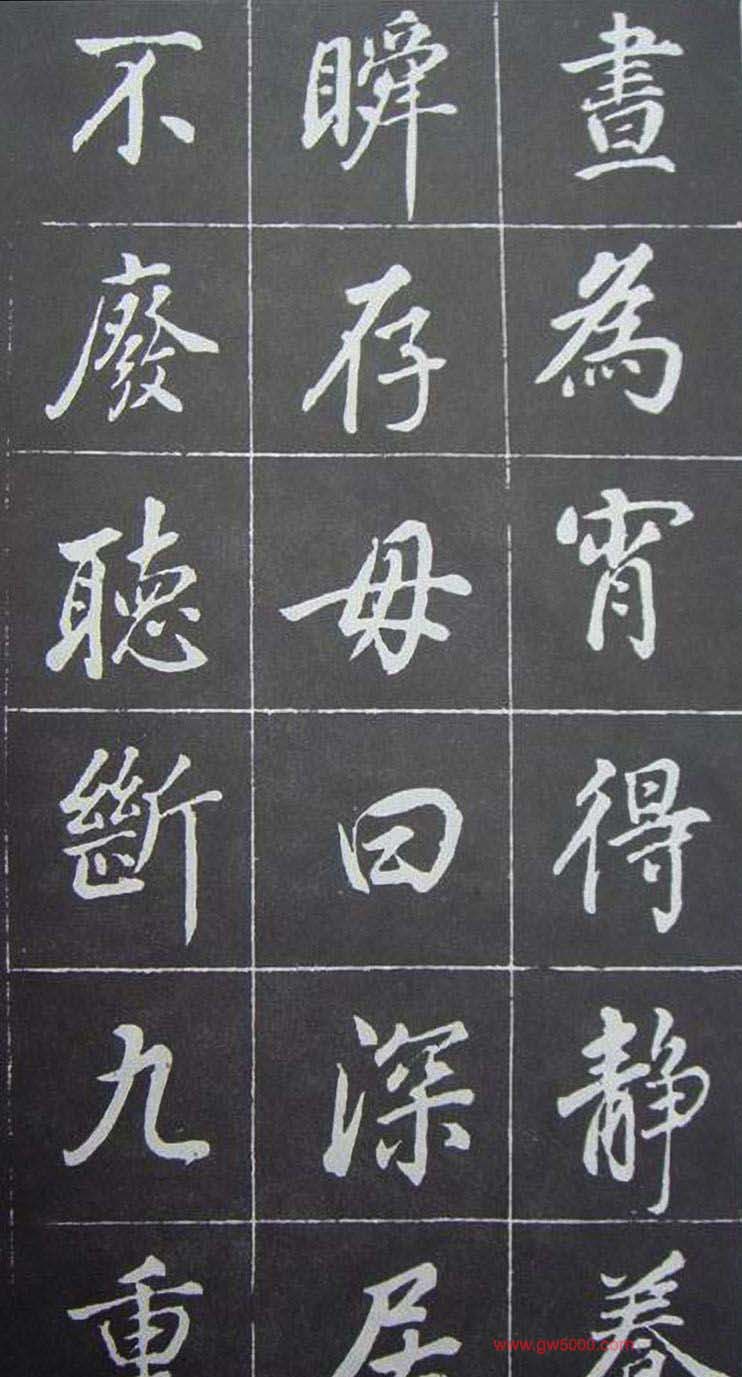 晝為宵得靜養
瞬存毋曰深居
不廢聽斷九重
www.gw5000.com